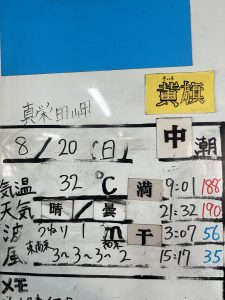 きいろ
黄旗
真栄田岬
中潮
8/20(日)
気温 32℃ 満 9:01 188
天気 晴/曇 21:32 190
波 うねり 1 m 干 3:07 56
風 東南東 3〜3〜3〜2 15:17 35
メモ